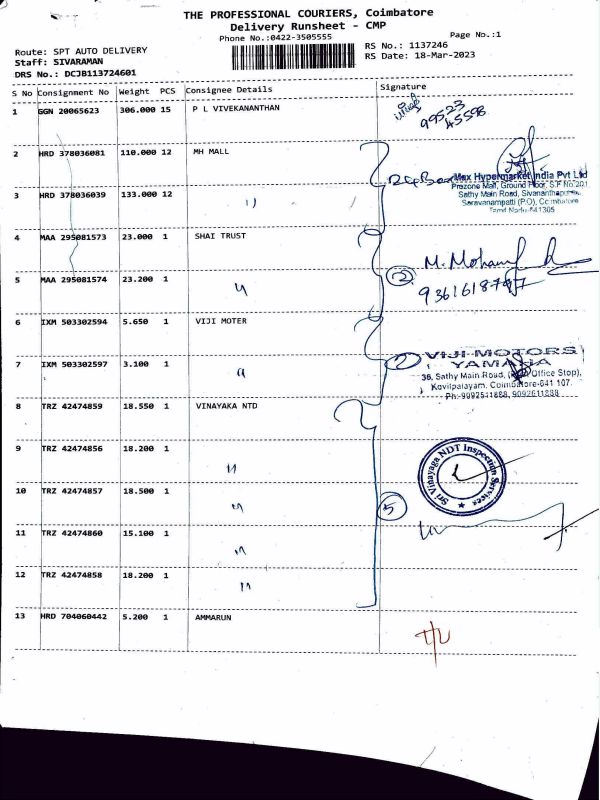 THE PROFESSIONAL COURIERS, Coimbatore
Delivery Runsheet - CMP
Phone No.:0422-3505555
Page No.:1
Route: SPT AUTO DELIVERY
RS No.: 1137246
Staff: SIVARAMAN
RS Date: 18-Mar-2023
DRS No.: DCJB113724601
S No Consignment No Weight PCS Consignee Details Signature
1 GGN 20065623 306.000 15 P L VIVEKANANTHAN
99523
45598
2 HRD 378036081 110.000 12 MH MALL
Max Hypermarket India Pvt Ltd
Prezone Mall, Ground Floor, S.F No.201
3 HRD 378036039 133.000 12 "
Sathy Main Road, Sivananthapuram,
Saravanampatti (P.O), Coimbatore
Tamil Nadu-641305
4 MAA 295081573 23.000 1 SHAI TRUST
M. Mohan
5 MAA 295081574 23.200 1 "
2
6 IXM 503302594 5.650 1 VIJI MOTER
7 IXM 503302597 3.100 1 "
2
VIJI MOTORS
YAMAHA
36, Sathy Main Road, Office Stop),
Kovilpalayam, Coimbatore-641 107.
Ph: 9092511888, 9092611888
8 TRZ 42474859 18.550 1 VINAYAKA NTD
9 TRZ 42474856 18.200 1 "
Sri Vinayaga NDT Inspection Services
10 TRZ 42474857 18.500 1 "
5
11 TRZ 42474860 15.100 1 "
12 TRZ 42474858 18.200 1 "
13 HRD 704060442 5.200 1 AMMARUN